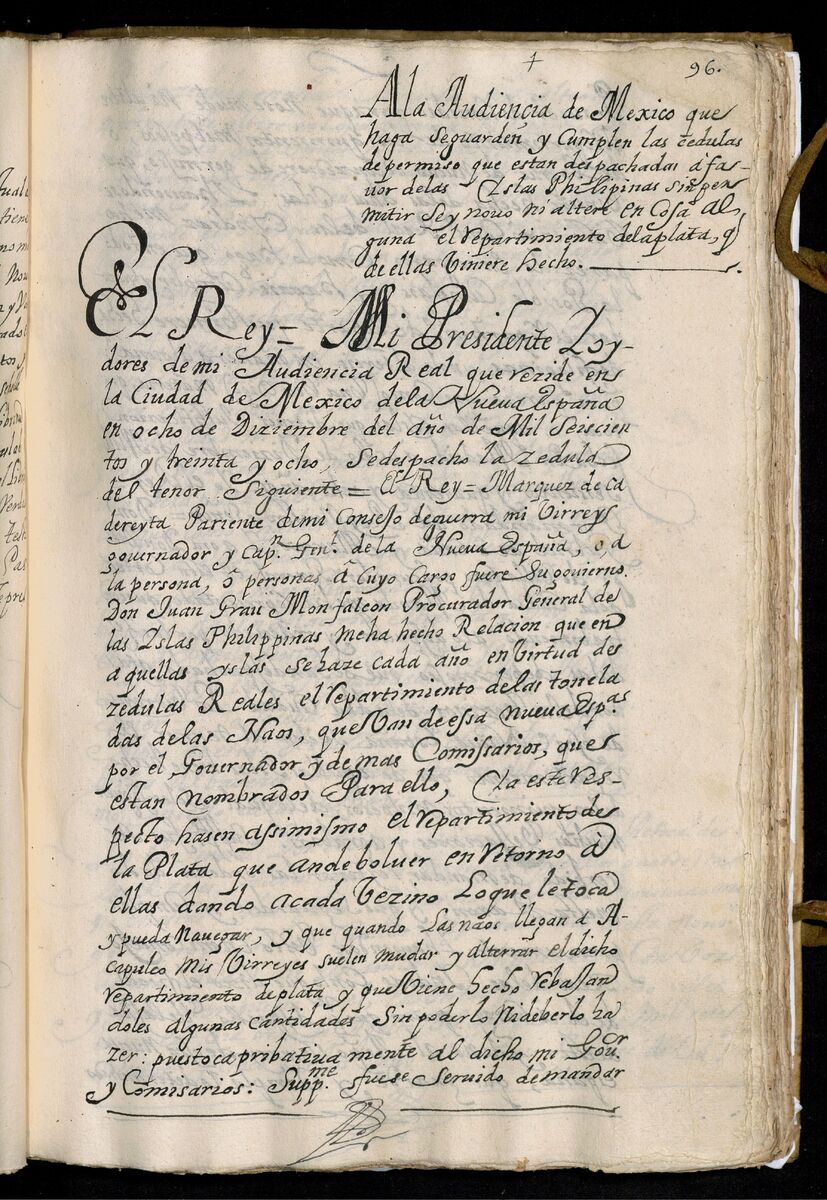 +
96.
A la Audiencia de Mexico que
haga Seguarden y Cumplen las zedulas
de permiso que estan despachadas a fa-
uor delas Yslas Philipinas sin per
mitir Seynove ni altere en Cosa al
guna el repartimiento dela plata, q
de ellas Viniere hecho.
El Rey = Mi Presidente Y oy-
dores de mi Audiencia Real que rezide en
la Ciudad de Mexico dela Nueva España
en ocho de Diziembre del año de Mil Seiscien
tos y treinta y ocho, Sedespacho la zedula
del tenor Siguiente = El Rey = Marquez de ca
dereyta Pariente demi Consejo deguerra mi Virrey
governador y Capn. Genl. de la Nueva España, o a
la persona, ó personas á Cuyo Cargo fuere Su govierno.
Don Juan Grau Monfalcon Procurador General de
las Yslas Philippinas meha hecho Relacion que en
aquellas yslas Sehaze cada año en Virtud de
zedulas Reales el repartimiento delas tonela
das delas Naos, que Van de essa nueva Espas.
por el Governador y demas Comissarios, que
estan nombrados Para ello, Y a este res-
pecto hasen assimismo el repartimiento de
la Plata que andebolver en retorno á
ellas dando acada Vezino Loque letoca
y pueda Navegar, y que quando Las naos llegan a A-
capulco Mis Virreyes suelen mudar y alterrar el dicho
repartimiento deplata y que Viene hecho rebajan
doles algunas cantidades Sin poderlo Nideberlo ha
zer: puestoca pribativa mente al dicho mi Govor.
y Comisarios: Suppme. fuese Servido demandar